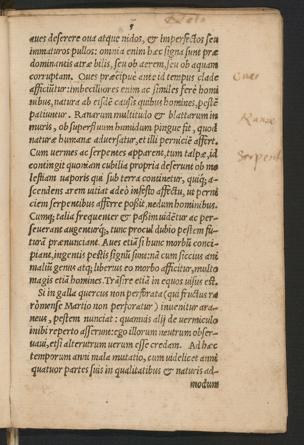 5
aues deserere oua atque nidos, & imperfectos seu
immaturos pullos: omnia enim hæc signa sunt præ
dominantis atræ bilis, seu ob aerem, seu ob aquam
corruptam. Oues præcipuè ante id tempus clade
afficiũtur: imbecilliores enim ac similes ferè homi
nibus, natura ab eisdẽ causis quibus homines, pestẽ
patiuntur. Ranarum multitudo & blattarum in
muris, ob superfluum humidum pingue fit, quod
naturæ humanæ aduersatur, et illi perniciẽ affert.
Cum uermes ac serpentes apparent, tum talpæ, id
contingit quoniam cubilia propria deserunt ob mo
lestiam uaporis qui sub terra continetur, quiq; a-
scendens arem uitiat adeò infesto affectu, ut perni
ciem serpentibus afferre poßit, nedum hominibus.
Cumq; talia frequenter & paßim uidẽtur ac per-
seuerant augenturq́;, tunc procul dubio pestem fu-
turã prænunciant. Aues etiã si hunc morbũ conci-
piant, ingentis pestis signũ sunt: nã cum siccius ani
maliũ genus atq; liberius eo morbo afficitur, multo
magis etiã homines. Trãsire etiã in equos uisus est.
Si in galla quercus non perforata (qui fructus
Martio non perforatur) inuenitur ara-
neus, pestem nunciat: quamuis alij de uermiculo
inibi reperto asserunt: ego illorum neutrum obser-
uaui, etsi alterutrum uerum esse credam. Ad hæc
temporum anni mala mutatio, cum uidelicet anni
quatuor partes suis in qualitatibus & naturis ad-
modum
Oues
Ranæ
Serpent